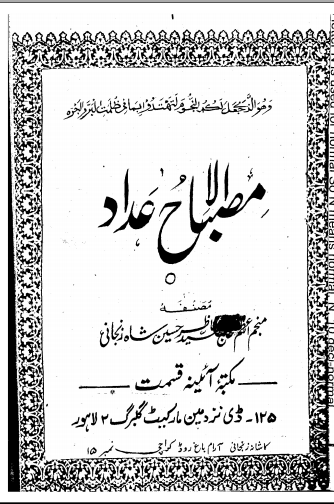 ۱
وَهُوَ الَّذِي جَعَلَ لَكُمُ النُّجُومَ لِتَهْتَدُوا بِهَا فِي ظُلُمٰتِ الْبَرِّ وَالْبَحْرِ
مصباح الاعداد
مصنفہ
منجم اعظم سید حسین شاہ زنجانی
مکتبہ آئینہ قسمت
۱۲۵۔ ڈی نزد مین مارکیٹ گلبرگ ۲ لاہور
کاشانہ زنجانی آرام باغ روڈ کراچی نمبر ۱۵